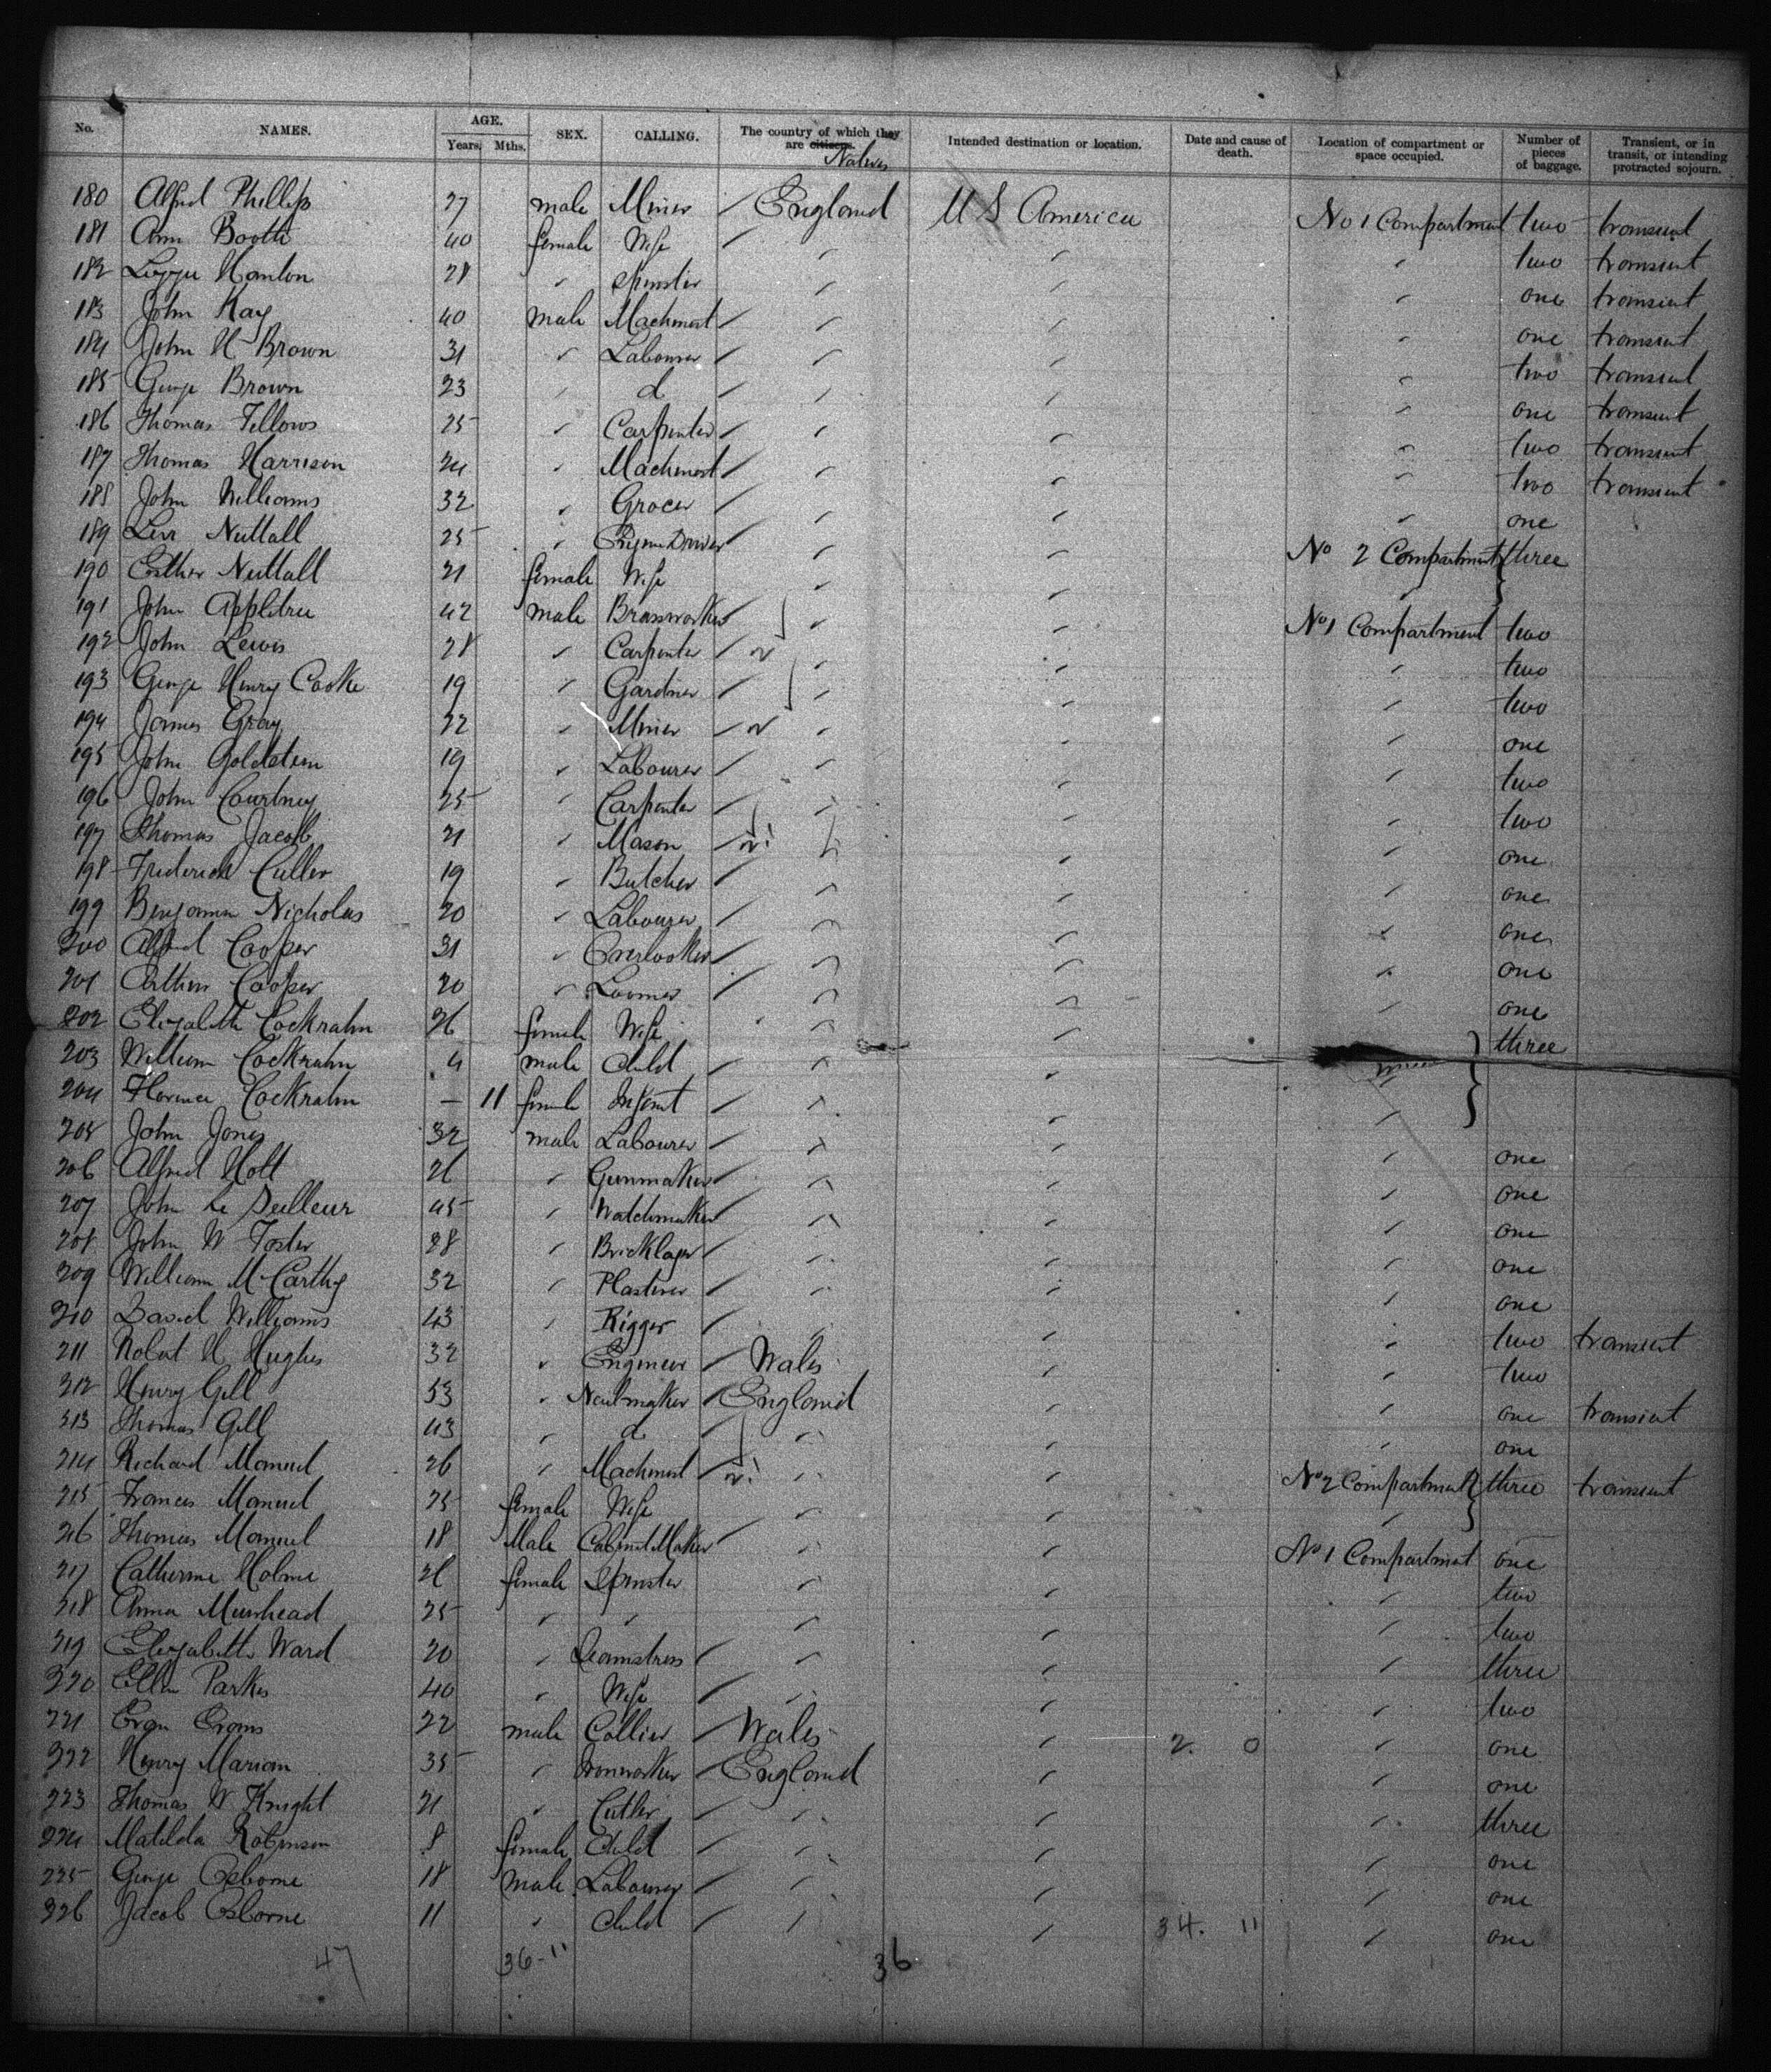 No. NAMES. AGE. Years. Mths. SEX. CALLING. The country of which they are citizens. Natives Intended destination or location. Date and cause of death. Location of compartment or space occupied. Number of pieces of baggage. Transient, or in transit, or intending protracted sojourn.
180 Alfred Phillips 27 male Miner / England U S America No 1 Compartment two transient
181 Ann Booth 40 female Wife / " " " two transient
182 Lizzie Hanlon 28 " Spinster " " " one transient
183 John Kay 40 male Machinist / " " " one transient
184 John H Brown 31 " Labourer / " " " two transient
185 George Brown 23 " d / " " " one transient
186 Thomas Fellows 25 " Carpenter / " " " two transient
187 Thomas Harrison 24 " Machinist / " " " two transient
188 John Williams 32 " Grocer / " " " one
189 Levi Nuttall 25 " Engine Driver / " " No 2 Compartment } three
190 Esther Nuttall 21 female Wife " " "
191 John Appletree 42 male Brassworker / " " No 1 Compartment two
192 John Lewis 28 " Carpenter / " " " two
193 George Henry Cooke 19 " Gardner / " " " two
194 James Gray 22 " Miner / " " " one
195 John Goldstein 19 " Labourer / " " " two
196 John Courtney 25 " Carpenter / " " " two
197 Thomas Jacob 21 " Mason / " " " one
198 Frederick Cutler 19 " Butcher / " " " one
199 Benjamin Nicholas 20 " Labourer / " " " one
200 Alfred Cooper 31 " Overlooker / " " " one
201 Arthur Cooper 20 " / " " " one
202 Elizabeth Cockrahm 26 female Wife " " } three
203 William Cockrahm 4 male Child / " " "
204 Florence Cockrahm — 11 female Infant / " " "
205 John Jones 32 male Labourer / " " " one
206 Alfred Holt 26 " Gunmaker / " " " one
207 John Le Seilleur 45 " Watchmaker / " " " one
208 John W Foster 28 " Bricklayer / " " " one
209 William McCarthy 32 " Plasterer / " " " one
210 David Williams 43 " Rigger / " " " two transient
211 Robert H Hughes 32 " Engineer / Wales " " two
212 Henry Gill 53 " Nailmaker / England " " one transient
213 Thomas Gill 43 " d " " " one
214 Richard Manuel 26 " Machinist / " " No 2 Compartment } three transient
215 Frances Manuel 25 female Wife " " "
216 Thomas Manuel 18 Male Cabinet Maker / " " No 1 Compartment one
217 Catherine Holme 26 female Spinster " " " two
218 Anna Muirhead 25 " " " " " two
219 Elizabeth Ward 20 " Seamstress / " " " three
220 Ellen Parkes 40 " Wife / " " " two
221 Evan Evans 22 male Collier / Wales " 2. 0 " one
222 Henry Marian 35 " Ironworker / England " " one
223 Thomas W Knight 21 " Cutler / " " " three
224 Matilda Robinson 8 female Child / " " " one
225 George Osborne 18 male Labourer / " " " one
226 Jacob Osborne 11 " Child / " " 34. 11 " one
47 36-11 36